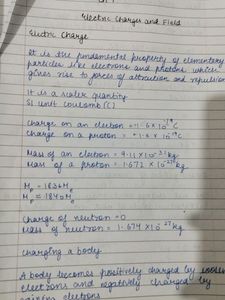 Electric Charges and Field
Electric Charge
It is the fundamental property of elementary
particles like electrons and protons which
gives rise to forces of attraction and repulsion
It is a scaler quantity
SI unit coulomb (C)
Charge on an electron = -1.6×10⁻¹⁹C
Charge on a proton = +1.6×10⁻¹⁹C
Mass of an electron = 9.11×10⁻³¹kg
Mass of a proton = 1.672×10⁻²⁷kg
Mₚ = 1836Mₑ
Mₚ = 1840Mₑ
Charge of neutron = 0
Mass of neutron = 1.674×10⁻²⁷kg
Charging a body
A body becomes positively charged by
electrons and negatively charged by
gaining electrons